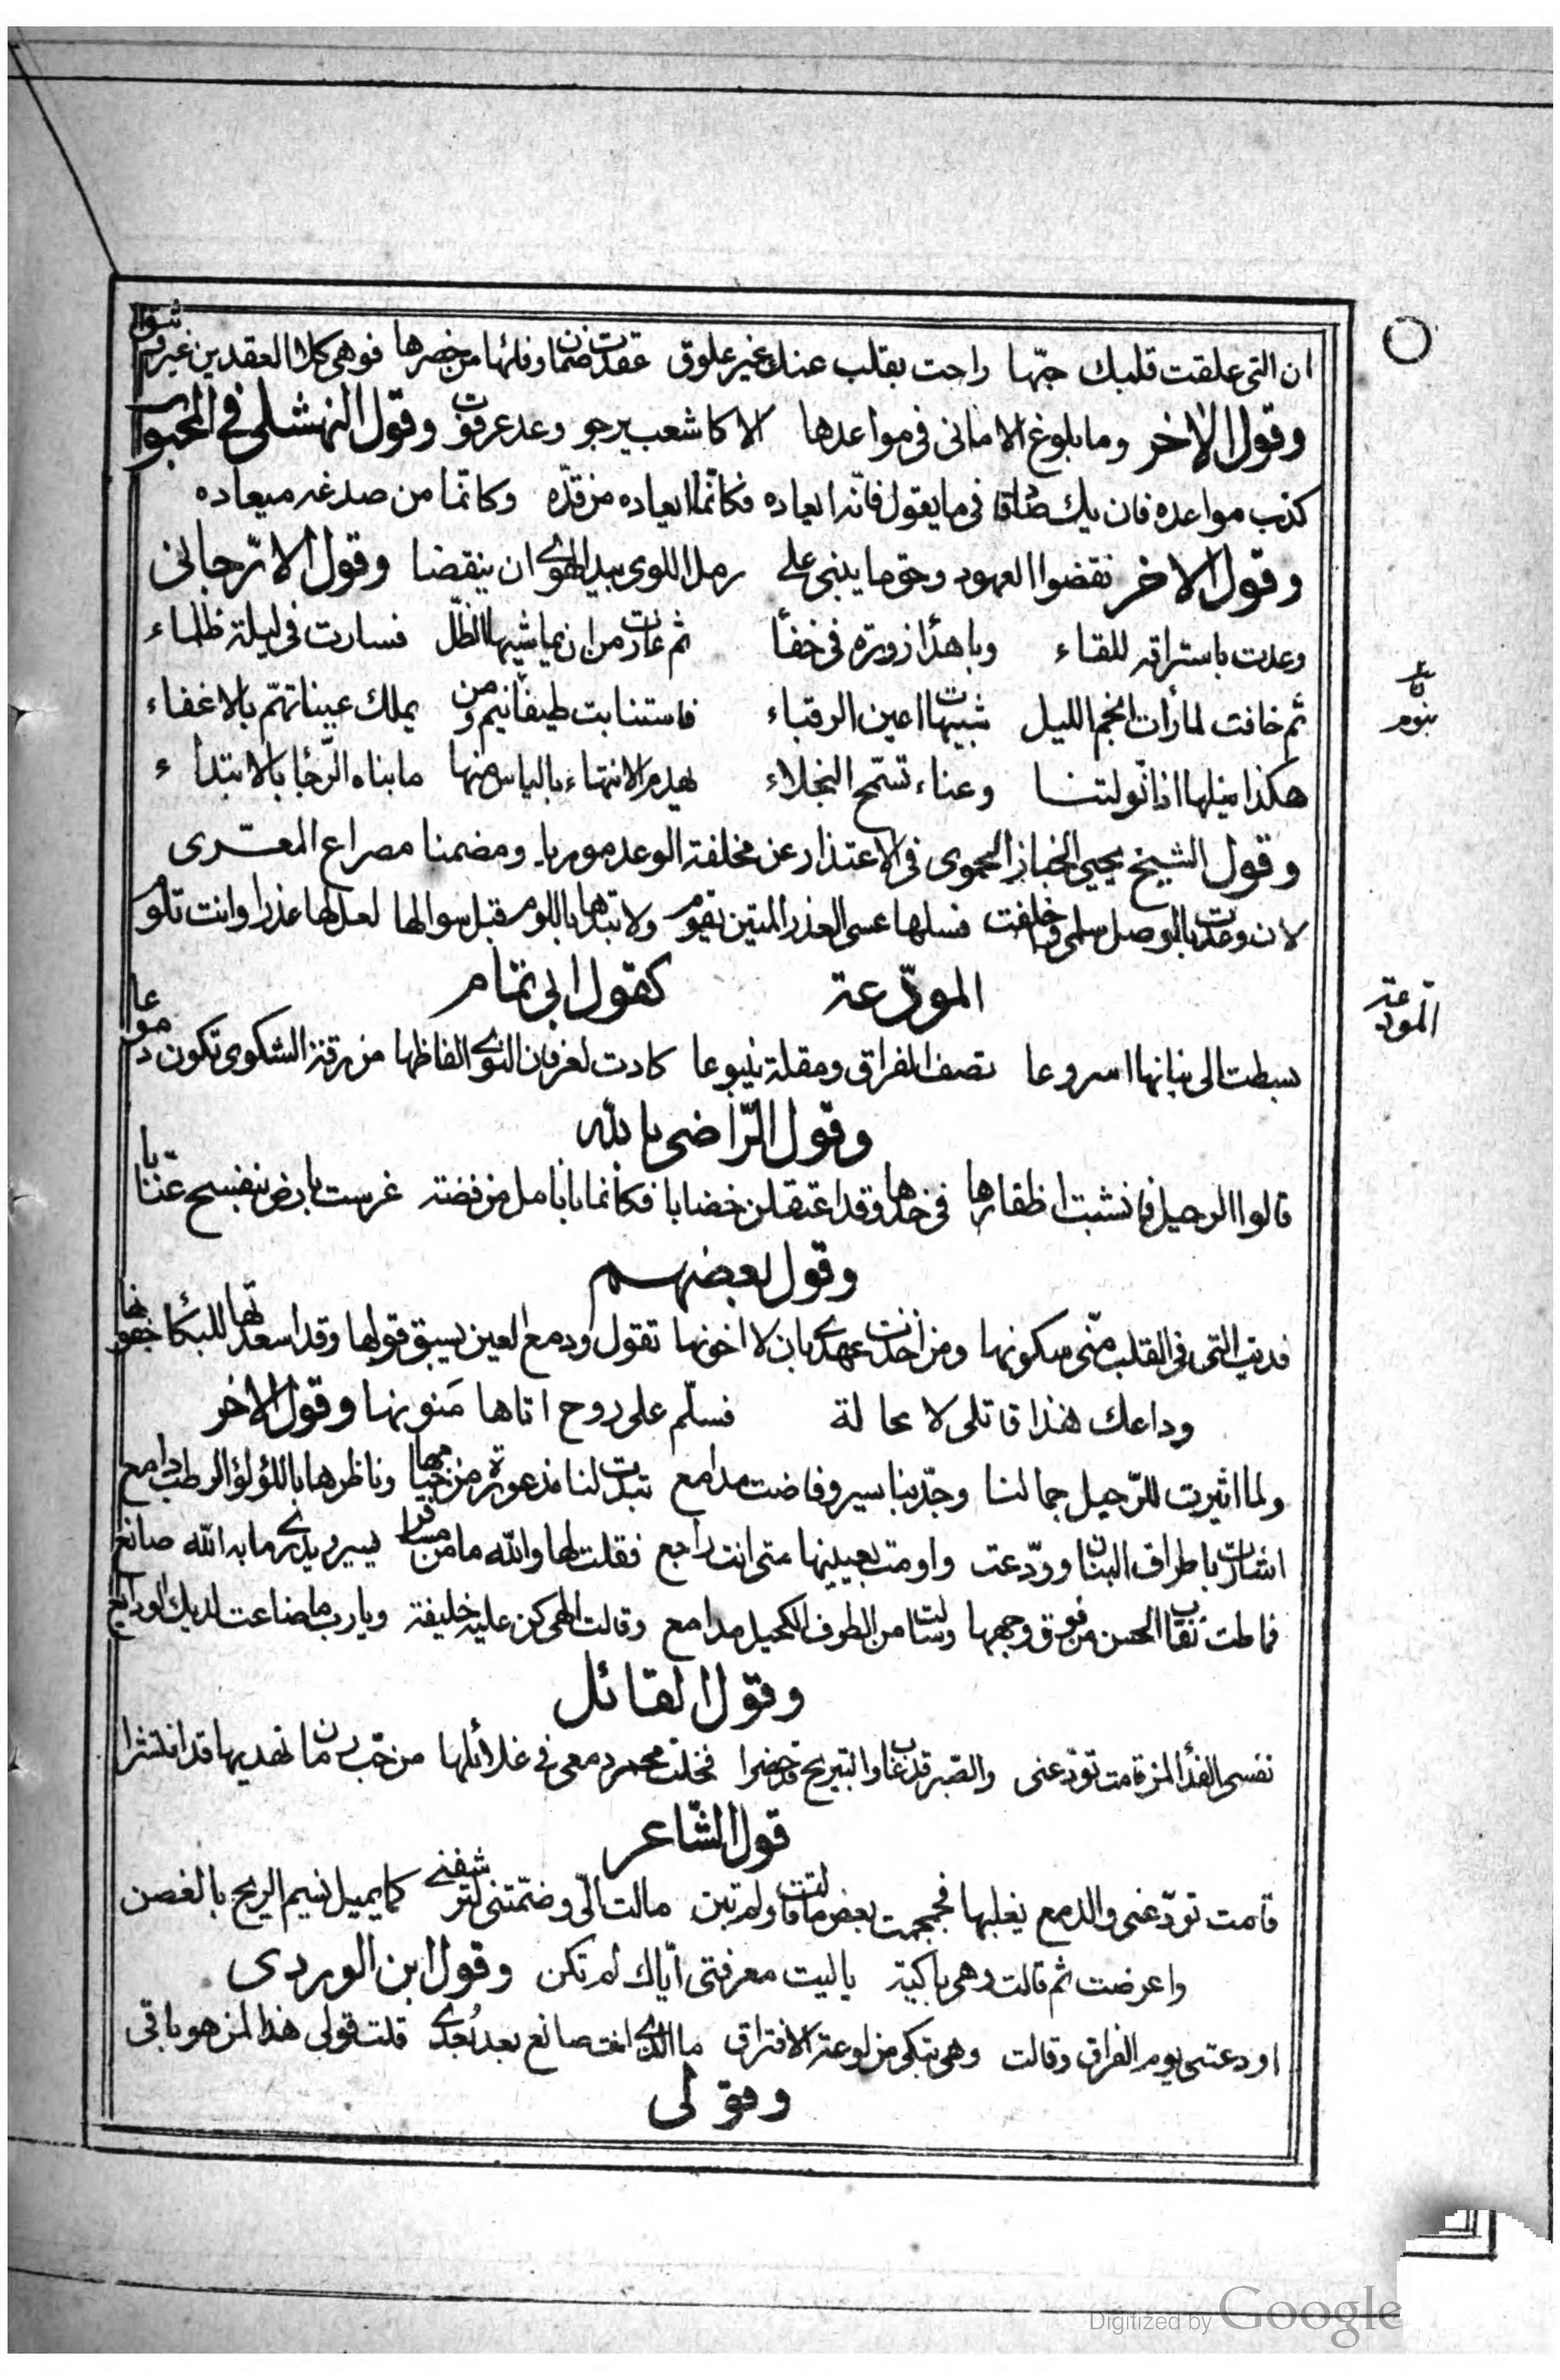 ان التی علقت قلبك حبّها راحت بقلب عنك غیر علوق عقدت ضمان وفائها من خصرها فوهی كلا العقدین غیر وثیق
وقول الاخر وما بلوغ الامانی فی مواعدها الا كاشعب یرجو وعد عرقوب وقول النهشلی فی المحبوب
كذب مواعده فان یك صادقا فی ما یقول فانّه ایعاده فكانّما ایعاده من قدّه وكانّما من صدغه میعاده
وقول الاخر نقضوا العهود وحق ما یبنی علی رمل اللوی بید الهوی ان ینقضا وقول الارّجانی
وعدت باستراقه للقاء وباهداء زورة فی خفاء ثم غارت من ان یماشیها الظلّ فسارت فی لیلة ظلماء
ثم خافت لما رأت انجم اللیل شبیهات اعین الرقباء فاستنابت طیفا یلم ومن یملك عینا تهمّ بالاغفاء
هكذا نیلها اذا نولتنا وعناء تسمّح البخلاء یهدم الانتهاء بالیاس منها ما بناه الرّجا بالابتداء
وقول الشیخ یحیی الخباز الحموی فی الاعتذار عن مخلفة الوعد موریا ومضمنا مصراع المعری
لان وعدت بالوصل سلمی وخلفت فسلها عسی العذر المتین یقوم ولا تبتدها باللوم قبل سوالها لعل لها عذرا وانت تلوم
المودّعة كقول ابی تمّام
بسطت الی بنانها اسروعا تصف الفراق ومقلة ینبوعا كادت لعرفان النوی الفاظها من رقة الشكوی تكون دموعا
وقول الرّاضی بالله
قالوا الرحیل فانشبت اظفارها فی خدها وقد اعتقلن خضابا فكانما بانامل من فضة غرست بارض بنفسج عنّابا
وقول بعضهم
فدیت التی فی القلب منّی سكونها ومن اخذت عهدی بان لا اخونها تقول ودمع العین یسبق قولها وقد اسعدتها للبكاء جفونها
وداعك هذا قاتلی لا محالة فسلّم علی روح اتاها مَنونها وقول الاخر
ولما اثیرت للرّحیل جمالنا وجدّ بنا سیر وفاضت مدامع تبدت لنا مذعورة من خبائها وناظرها باللؤلؤ الرطب دامع
اشارت باطراف البنان وودّعت واومت بعینیها متی انت راجع فقلت لها والله ما من مسافر یسیر ویدری ما به الله صانع
فماطت نقاب الحسن من فوق وجهها وسالت من الطرف الكحیل مدامع وقالت الهی كن علیه خلیفة ویارب ما ضاعت لدیك الودایع
وقول القائل
نفسی الفداء لمن قامت تودّعنی والصّبر قد غاب والتبریح قد حضرا فخلت دمعی فی غلائلها من حب رمان نهدیها قد انتثرا
قول الشّاعر
قامت تودّعنی والدمع یغلبها فجمجمت بعض ما قالت ولم تبن مالت الّی وضمّتنی لترشفنی كما یمیل نسیم الریح بالغصن
واعرضت ثم قالت وهی باكیة یالیت معرفتی ایّاك لم تكن وقول ابن الوردی
اودعتنی یوم الفراق وقالت وهی تبكی من لوعة الافتراق ما الذی انت صانع بعد بُعدی قلت قولی هذا لمن هو باقی
وقولی
المودّعة
Digitized by Google